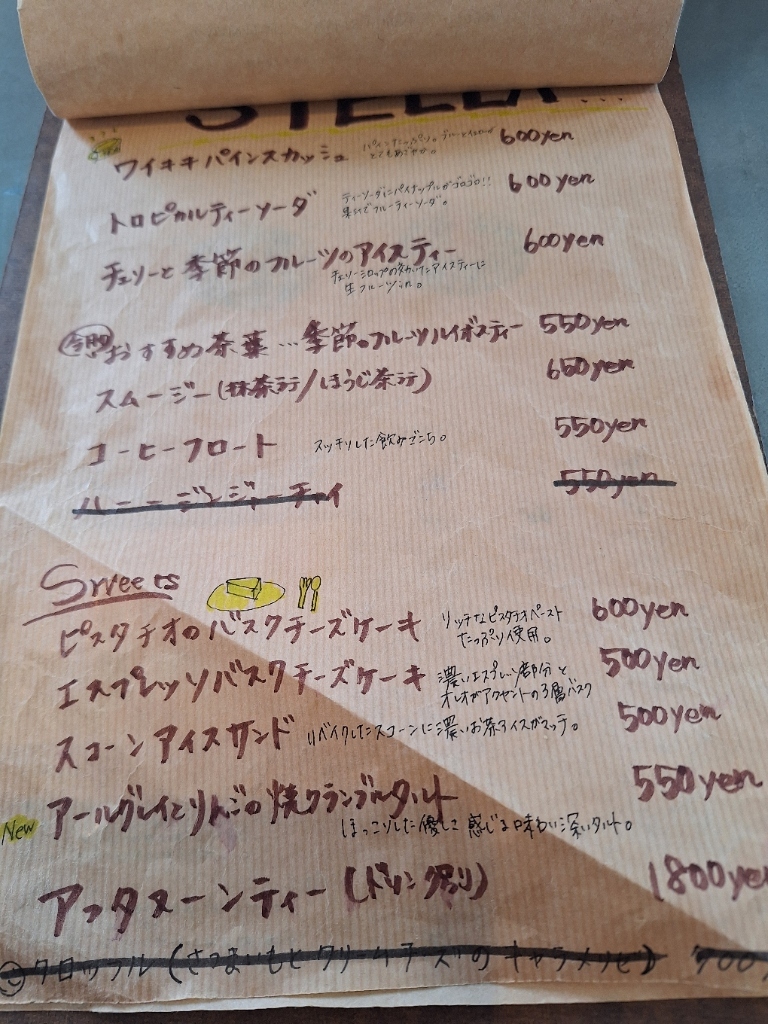 STELLA...
ワイキキパインスカッシュ 600yen
トロピカルティーソーダ ティーソーダにパイナップルがゴロゴロ!! 600yen
フルーティーソーダ。
チェリーと季節のフルーツのアイスティー 600yen
チェリーシロップの効いたアイスティーに
生フルーツin。
おすすめ茶葉...季節のフルーツルイボスティー 550yen
スムージー(抹茶/ほうじ茶) 650yen
コーヒーフロート スッキリした飲みごこち。 550yen
ハニージンジャーチャイ 550yen
Sweets
ピスタチオのバスクチーズケーキ リッチなピスタチオペースト 600yen
たっぷり使用。
エスプレッソバスクチーズケーキ 濃いエスプレッソ部分と 500yen
オレオがアクセントの3層バスク
スコーンアイスサンド リベイクしたスコーンに濃いお茶アイスがマッチ。 500yen
New アールグレイとりんごの焼クランブルタルト 550yen
ほっこりした優しさ感じる味わい深いタルト。
アフタヌーンティー(ドリンク別) 1800yen
クロッフル(さつまいもとクリームチーズのキャラメリゼ) 700